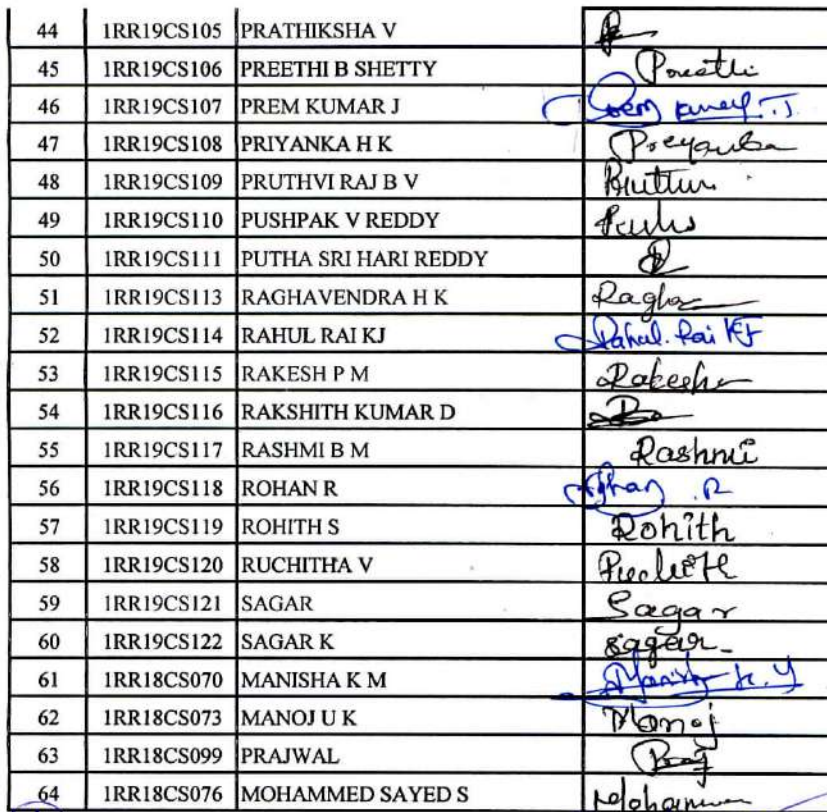 44 1RR19CS105 PRATHIKSHA V
45 1RR19CS106 PREETHI B SHETTY Preethi
46 1RR19CS107 PREM KUMAR J
47 1RR19CS108 PRIYANKA H K Preyanka
48 1RR19CS109 PRUTHVI RAJ B V
49 1RR19CS110 PUSHPAK V REDDY
50 1RR19CS111 PUTHA SRI HARI REDDY
51 1RR19CS113 RAGHAVENDRA H K Ragha
52 1RR19CS114 RAHUL RAI KJ Rahul.Rai KJ
53 1RR19CS115 RAKESH P M Rakesh
54 1RR19CS116 RAKSHITH KUMAR D
55 1RR19CS117 RASHMI B M Rashmi
56 1RR19CS118 ROHAN R
57 1RR19CS119 ROHITH S Rohith
58 1RR19CS120 RUCHITHA V
59 1RR19CS121 SAGAR Sagar
60 1RR19CS122 SAGAR K sagar
61 1RR18CS070 MANISHA K M
62 1RR18CS073 MANOJ U K Manoj
63 1RR18CS099 PRAJWAL
64 1RR18CS076 MOHAMMED SAYED S